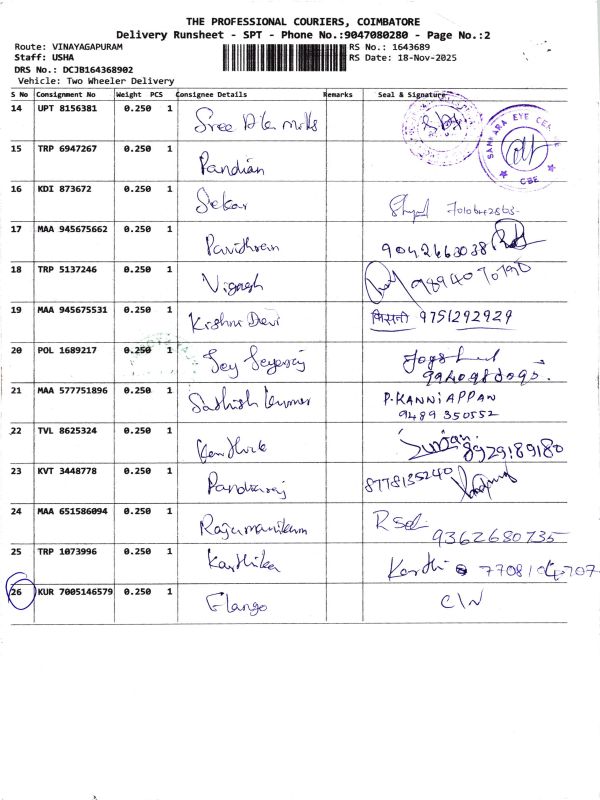 THE PROFESSIONAL COURIERS, COIMBATORE
Delivery Runsheet - SPT - Phone No.:9047080280 - Page No.:2
Route: VINAYAGAPURAM RS No.: 1643689
Staff: USHA RS Date: 18-Nov-2025
DRS No.: DCJB164368902
Vehicle: Two Wheeler Delivery
S No Consignment No Weight PCS Consignee Details Remarks Seal & Signature
14 UPT 8156381 0.250 1 Sree
SANKARA EYE CBE
15 TRP 6947267 0.250 1 Pandian
16 KDI 873672 0.250 1 Sekar
17 MAA 945675662 0.250 1 Pavithran 9042663038
18 TRP 5137246 0.250 1 Vignesh
19 MAA 945675531 0.250 1 Krishna Devi 9751292929
20 POL 1689217 0.250 1
21 MAA 577751896 0.250 1 Sathish Kumar P.KANNIAPPAN
9489 350552
22 TVL 8625324 0.250 1 8929189180
23 KVT 3448778 0.250 1 Pandiaraj 8778135240
24 MAA 651586094 0.250 1 Rajumanikam
9362680735
25 TRP 1073996 0.250 1 Karthika Karthi
26 KUR 7005146579 0.250 1 Elango C/N